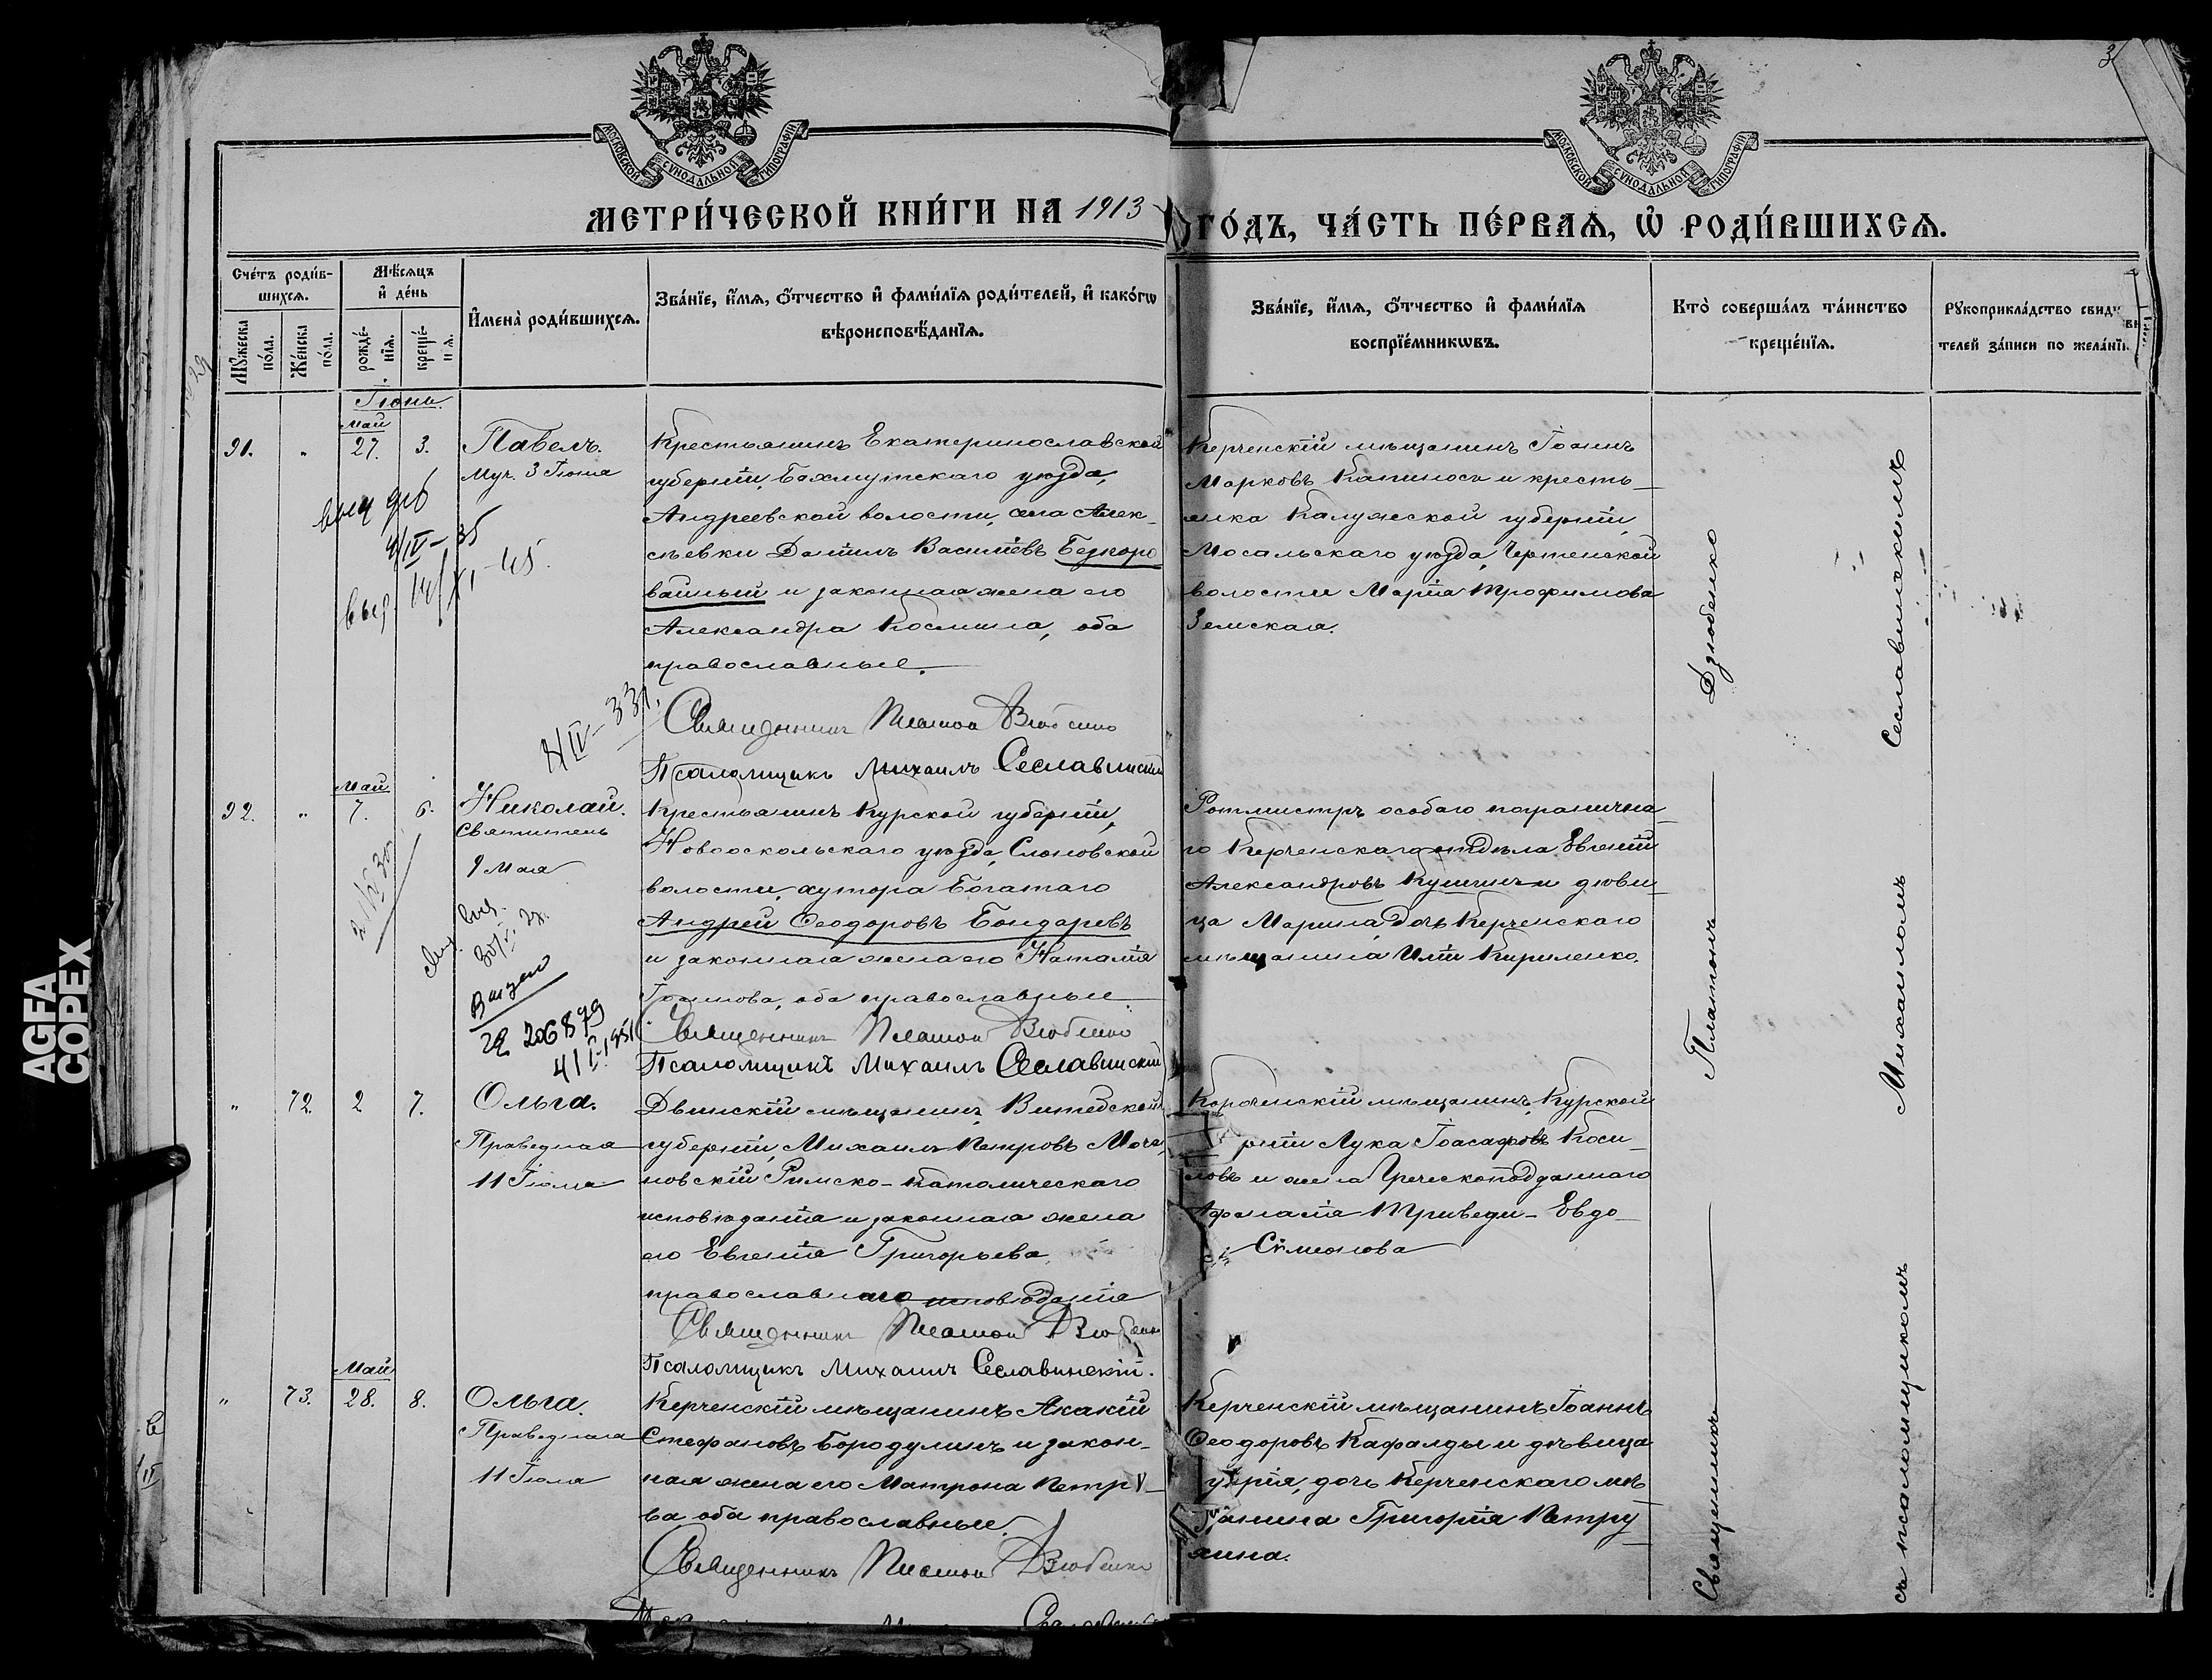 МОСКОВСКОЙ СѴНОДАЛЬНОЙ ТИПОГРАФІИ
МОСКОВСКОЙ СѴНОДАЛЬНОЙ ТИПОГРАФІИ
3
МЕТРИ́ЧЕСКОЙ КНИ́ГИ НА 1913 ГО́ДЪ, ЧА́СТЬ ПЕ́РВАѦ, Ѡ҆ РОДИ́ВШИХСѦ.
Сче́тъ роди́в-
шихсѧ.
Мꙋжеска по́ла.
Же́нска по́ла.
Мѣ́сѧцъ
и҆ де́нь
рожде́-
нїѧ.
креще́-
нїѧ.
И҆мена̀ роди́вшихсѧ.
Зва́нїе, и҆́мѧ, ѻ҆́тчество и҆ фами́лїѧ роди́телей, и҆ како́гѡ
вѣроисповѣ́данїѧ.
Зва́нїе, и҆́мѧ, ѻ҆́тчество и҆ фами́лїѧ
воспрїе́мникѡвъ.
Кто̀ соверша́лъ та́инство
креще́нїѧ.
Рꙋкоприкла́дство свид
телей за́писи по жела́нїю
Іюнь.
Май
91. " 27. 3. Павелъ.
Муч. 3 Іюня
Крестьянинъ Екатеринославской
губерніи, Бахмутскаго уѣзда,
Андреевской волости, села Алек-
сѣевки Даніилъ Василіевъ Безкоро
вайный и законная жена его
Александра Космина, оба
православные.
Священникъ Платон Дзюбенко
Псаломщикъ Михаилъ Сеславинскій
Керченскій мѣщанинъ Іоаннъ
Марковъ Капиносъ и кресть-
янка Калужской губерніи,
Мосальскаго уѣзда, Чертенской
волости Марія Трофимова
Земская.
4/IV-35
выд. 14/XI-45.
4/IV-331.
Май
92. " 7. 6. Николай.
Святитель
9 Мая
Крестьянинъ Курской губерніи,
Новооскольскаго уѣзда, Слоновской
волости, хутора Богатаго
Андрей Ѳеодоровъ Бондаревъ
и законная жена его Наталія
Іоаннова, оба православные.
Священникъ Платон Дзюбенко
Псаломщикъ Михаилъ Сеславинскій
Ротмистръ особаго погранична-
го Керченскаго отдѣла Евгеній
Александровъ и дѣви-
ца Марина, дочь Керченскаго
мѣщанина Иліи Кириленко.
Выдано
206879
4/I-1951
" 72. 2 7. Ольга.
Праведная
11 Іюля
Двинскій мѣщанинъ, Витебской
губерніи, Михаилъ Петровъ Моча
новскій Римско-католическаго
исповѣданія и законная жена
его Евгенія Григорьева,
православнаго исповѣданія
Священникъ Платон Дзюбенко
Псаломщикъ Михаилъ Сеславинскій.
Короченскій мѣщанинъ, Курской
рніи Лука Іоасафовъ Коси-
ловъ и жена Греческоподданнаго
Афанасія Триведи - Евдо-
Сѵмеонова
Май
" 73. 28. 8. Ольга.
Праведная
11 Іюля
Керченскій мѣщанинъ Акакій
Стефановъ Бородулинъ и закон-
ная жена его Матрона Петро-
ва оба православные.
Священникъ Платон Дзюбенко
Керченскій мѣщанинъ Іоаннъ
Ѳеодоровъ Кафалды и дѣвица
рія, дочь Керченскаго мѣ-
щанина Григорія Петру-
хина.
Священникъ Платонъ Дзюбенко
съ псаломщикомъ Михаиломъ Сеславинскимъ
AGFA
COPEX